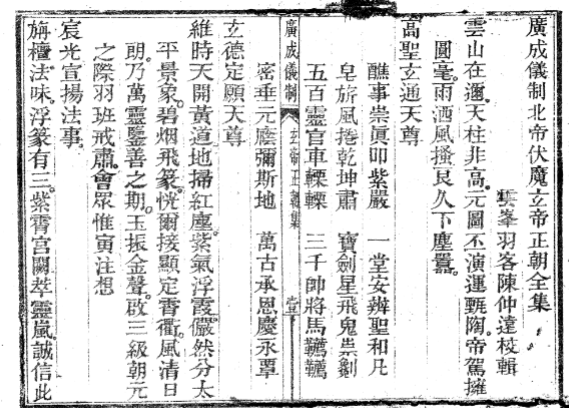 廣成儀制北帝伏魔立帝正朝全集
雲峯羽客陳仲遠校輯
雲山在邇天柱非高元圖丕演運甄陶帝駕擁
圓毫雨洒風搔艮久下塵囂
高聖玄通天尊
醮事崇眞叩紫嚴　一堂安辦聖和凡
皂旂風捲乾坤肅　寶劍星飛鬼祟劖
五百靈官車轣轣　三千帥將馬驣驣
廣成儀制　玄帝正朝集　壹
密垂元廕彌斯地　萬古承恩慶永覃
玄德定願天尊
維時天開黃道地掃紅塵紫氣浮霞儼然分太
平景象碧烟飛篆恍爾接顯定香衢風清日
朗乃萬靈鑒善之期玉振金聲啟三級朝元
之際羽班戒肅會眾惟寅注想
宸光宣揚法事
旃檀法味浮篆有三紫霄宮闕萃靈嵐誠信此